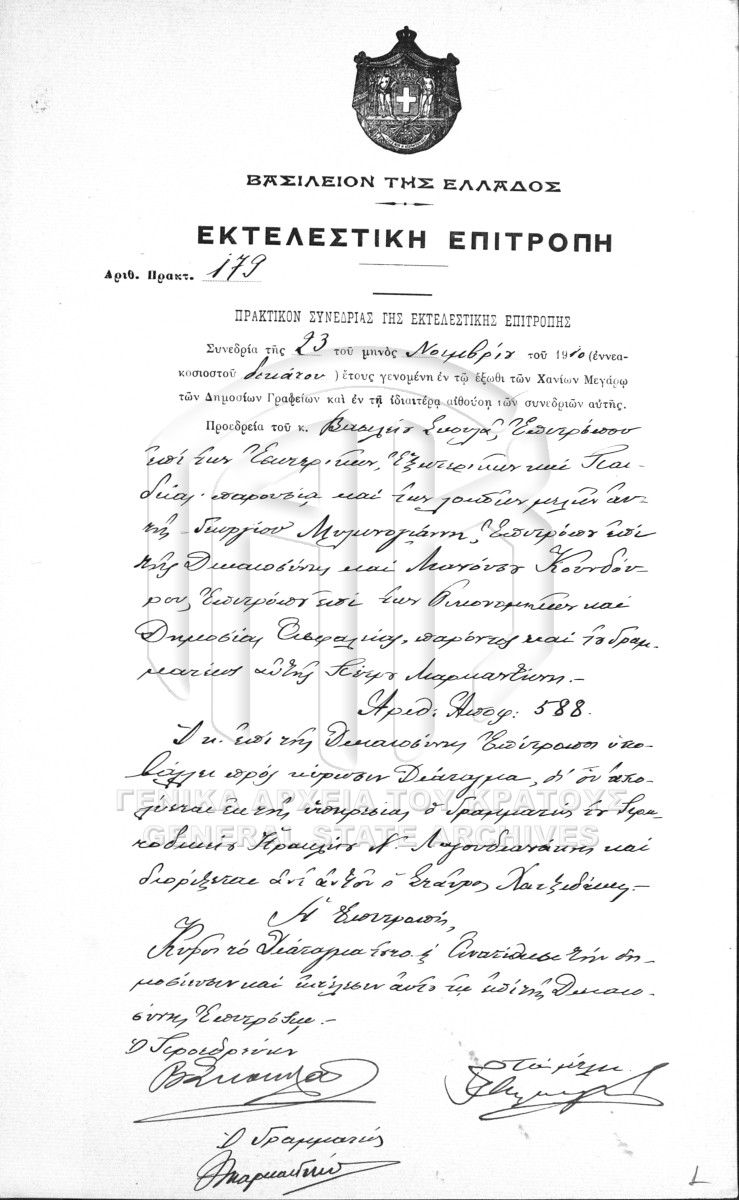 ΒΑΣΙΛΕΙΟΝ ΤΗΣ ΕΛΛΑΔΟΣ
ΕΚΤΕΛΕΣΤΙΚΗ ΕΠΙΤΡΟΠΗ
Αριθ. Πρακτ. 179
ΠΡΑΚΤΙΚΟΝ ΣΥΝΕΔΡΙΑΣ ΤΗΣ ΕΚΤΕΛΕΣΤΙΚΗΣ ΕΠΙΤΡΟΠΗΣ
Συνεδρία τῆς 23 τοῦ μηνὸς Νοεμβρίου τοῦ 1910 (ἐννεα-
κοσιοστοῦ δεκάτου ) ἔτους γενομένη ἐν τῷ ἔξωθι τῶν Χανίων Μεγάρῳ
τῶν Δημοσίων Γραφείων καὶ ἐν τῇ ἰδιαιτέρᾳ αἰθούσῃ τῶν συνεδριῶν αὐτῆς.
Προεδρεία τοῦ κ. Βασιλείου Σκουλᾶ, Ἐπιτρόπου
ἐπὶ τῶν Ἐσωτερικῶν, Ἐξωτερικῶν καὶ Παι-
δείας παρουσίᾳ καὶ τῶν λοιπῶν μελῶν αὐ-
τῆς Γεωργίου Μυλωνογιάννη, Ἐπιτρόπου ἐπὶ
τῆς Δικαιοσύνης καὶ Μανούσου Κουνδού-
ρου, Ἐπιτρόπου ἐπὶ τῶν Οἰκονομικῶν καὶ
Δημοσίας Ἀσφαλείας, παρόντος καὶ τοῦ Γραμ-
ματέως αὐτῆς Μαρκαντώνη.-
Ἀριθ: Ἀποφ: 588.
Ὁ κ. ἐπὶ τῆς Δικαιοσύνης Ἐπίτροπος ὑπο-
βάλλει πρὸς κύρωσιν Διάταγμα, δι' οὗ ἀπο-
λύεται ἐκ τῆς ὑπηρεσίας ὁ Γραμματεὺς τοῦ Εἰρη-
νοδικείου Ν. καὶ
διορίζεται ἀντ' αὐτοῦ ὁ Σταῦρος Χατζιδάκης.-
Ἡ Ἐπιτροπή,
Κυροῖ τὸ Διάταγμα τοῦτο & ἀνατίθησι τὴν δη-
μοσίευσιν καὶ ἐκτέλεσιν αὐτοῦ τῷ ἐπὶ τῆς Δικαιο-
σύνης Ἐπιτρόπῳ.-
Ὁ Προεδρεύων
Τὰ μέλη
ΒΣκουλᾶς
Ὁ Γραμματεὺς
ΓΕΝΙΚΑ ΑΡΧΕΙΑ ΤΟΥ ΚΡΑΤΟΥΣ
GENERAL STATE ARCHIVES